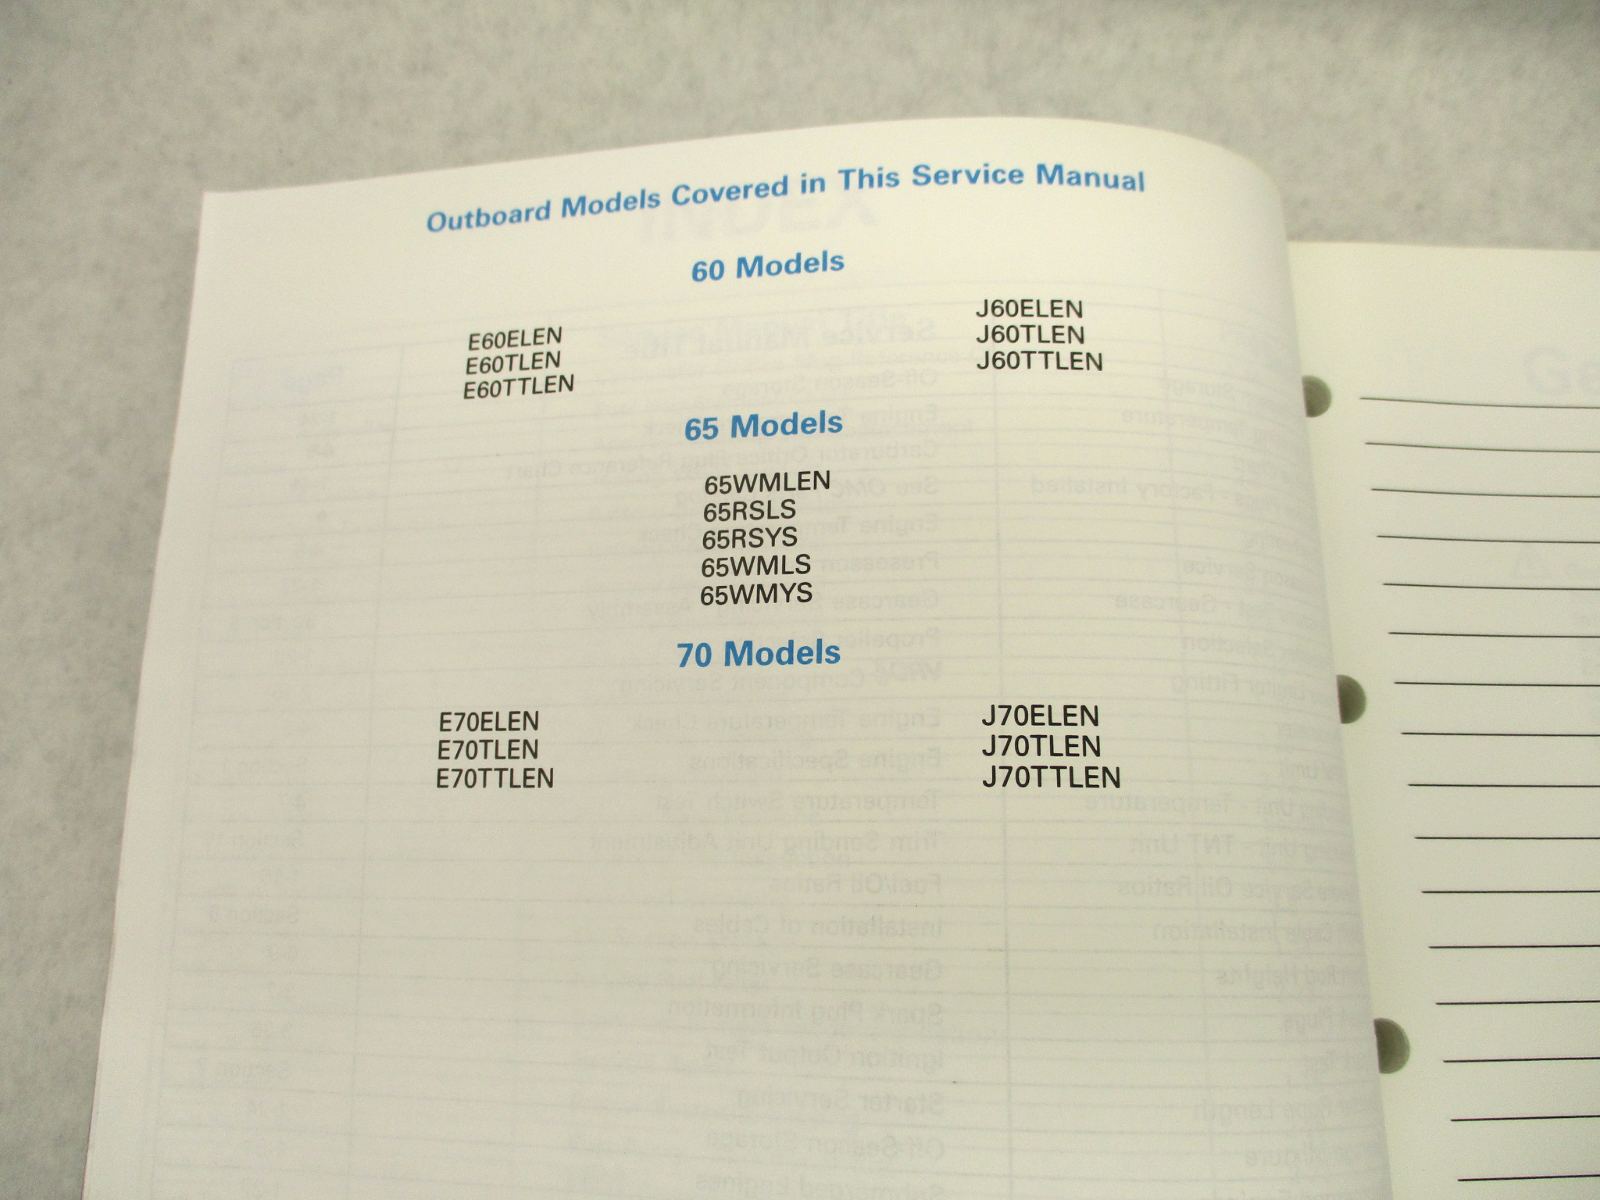 Outboard Models Covered in This Service Manual
60 Models
E60ELEN
E60TLEN
E60TTLEN
J60ELEN
J60TLEN
J60TTLEN
65 Models
65WMLEN
65RSLS
65RSYS
65WMLS
65WMYS
70 Models
E70ELEN
E70TLEN
E70TTLEN
J70ELEN
J70TLEN
J70TTLEN